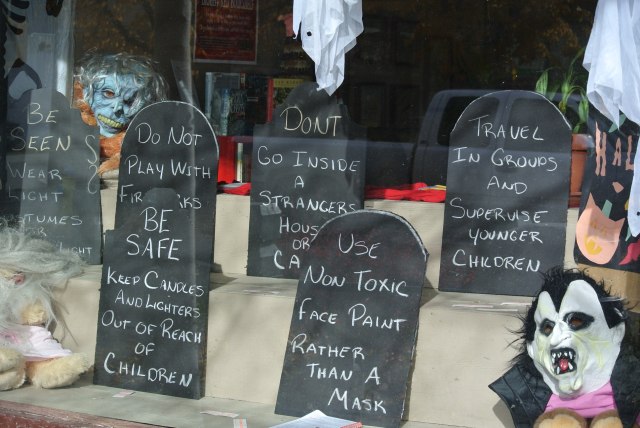 BE
SEEN
WEAR
COSTUMES
DO NOT
PLAY WITH
BE
SAFE
KEEP CANDLES
AND LIGHTERS
OUT OF REACH
OF
CHILDREN
DONT
GO INSIDE
A
STRANGERS
OR
USE
NON TOXIC
FACE PAINT
RATHER
THAN A
MASK
TRAVEL
IN GROUPS
AND
SUPERVISE
YOUNGER
CHILDREN